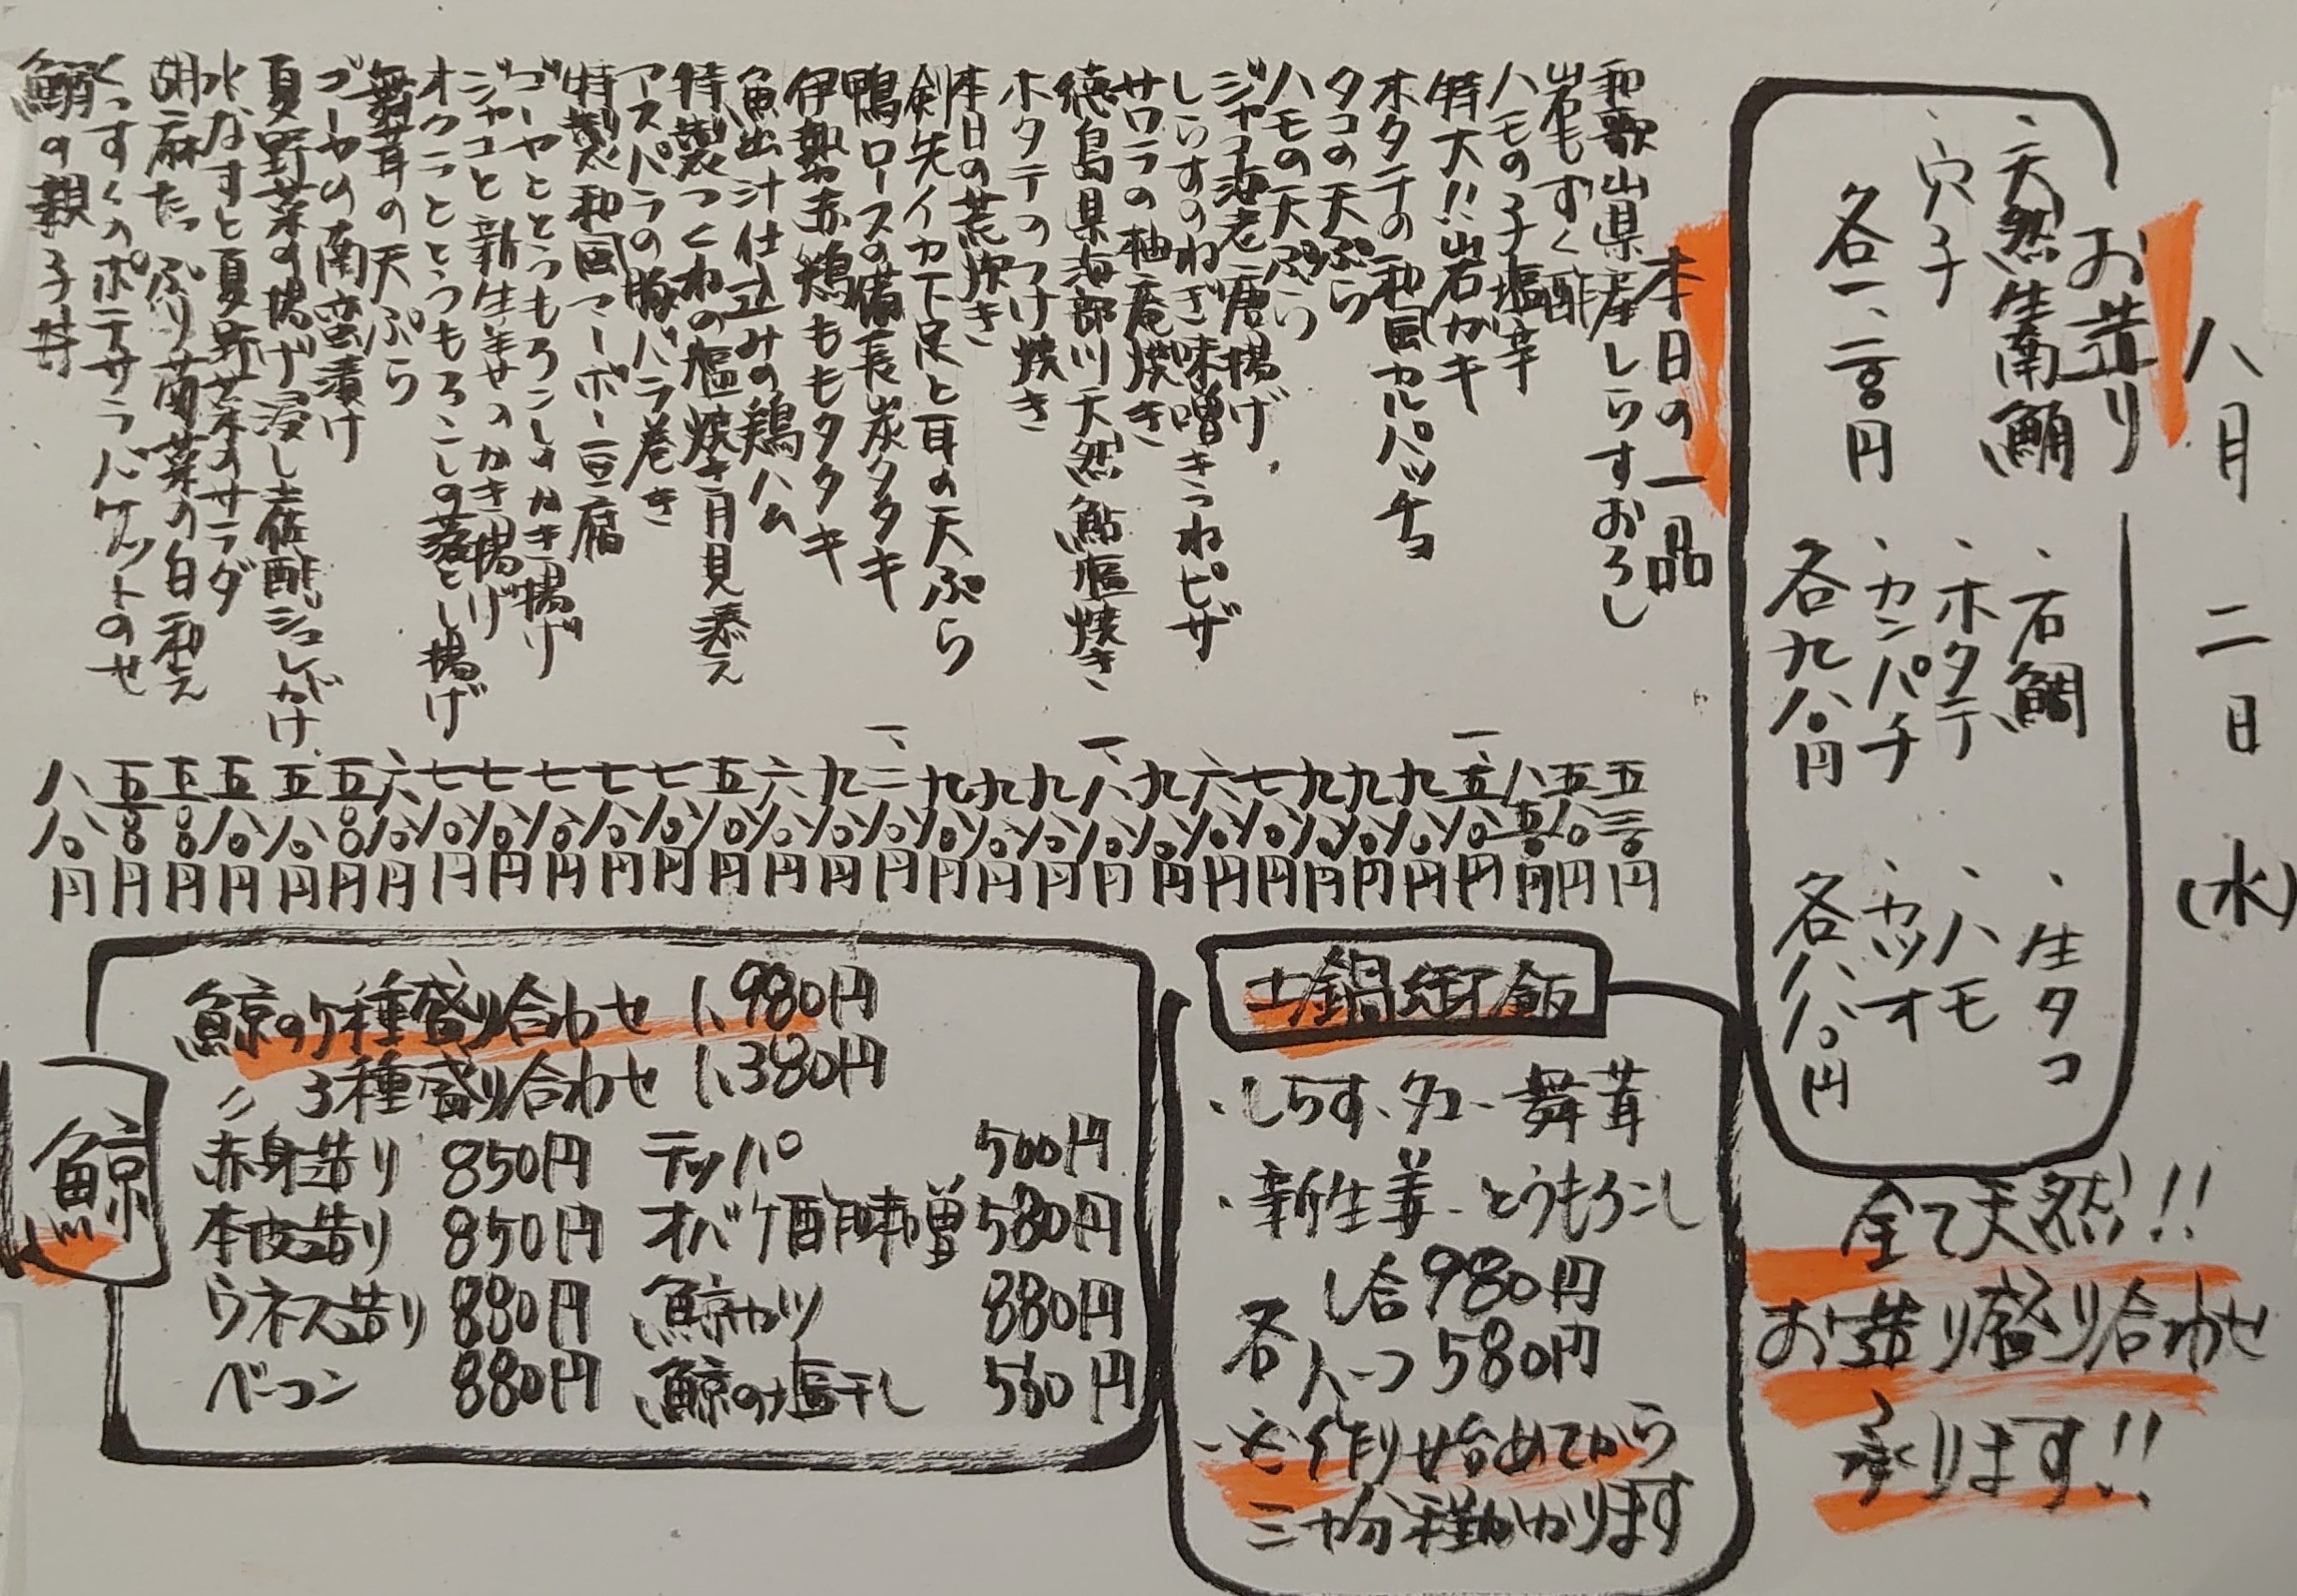 八月二日(水)
お造り
、天然生南鮪
、穴子
各一、二八〇円
、石鯛
、ホタテ
、カンパチ
各九八〇円
、生タコ
、ハモ
、カツオ
各八八〇円
全て天然!!
お造り盛り合わせ
承ります!!
本日の一品
和歌山県産しらすおろし 五三〇円
岩もずく酢 五八〇円
ハモの子塩辛 八五〇円
特大!!岩ガキ 一、五八〇円
ホタテの和風カルパッチョ 九八〇円
タコの天ぷら 九八〇円
ハモの天ぷら 九八〇円
ジャコ海老唐揚げ 七八〇円
しらすのねぎ味噌きつねピザ 六八〇円
サワラの柚庵焼き 九八〇円
徳島県海部川天然鮎塩焼き 一、八八〇円
ホタテのつけ焼き 九八〇円
本日の荒炊き 九八〇円
剣先イカ下足と耳の天ぷら 九八〇円
鴨ロースの備長炭タタキ 一、二八〇円
伊勢赤鶏ももタタキ 九八〇円
魚出汁仕込みの鶏ハム 六八〇円
特製つくねの塩焼き月見添え 五八〇円
アスパラの豚バラ巻き 七八〇円
特製和風マーボー豆腐 七八〇円
ゴーヤととうもろこしのかき揚げ 七八〇円
ジャコと新生姜のかき揚げ 七八〇円
オクラととうもろこしの落とし揚げ 七八〇円
舞茸の天ぷら 六八〇円
ゴーヤの南蛮漬け 五八〇円
夏野菜の揚げ浸し土佐酢ジュレがけ 五八〇円
水なすと夏野菜のサラダ 五八〇円
胡麻たっぷり菊菜の白和え 五八〇円
くつすくのポテサラバケットのせ 五八〇円
鮪の親子丼 八八〇円
土鍋御飯
、しらす、タコ、舞茸
、新生姜、とうもろこし
各
1合980円
八一つ580円
作り始めてから
三十分程掛かります
鯨
鯨の5種盛り合わせ 1,980円
〃 3種盛り合わせ 1,380円
赤身造り 850円 テッパ 500円
本皮造り 850円 オバケ酢味噌 580円
ウネス造り 880円 鯨カツ 880円
ベーコン 880円 鯨の塩干し 580円